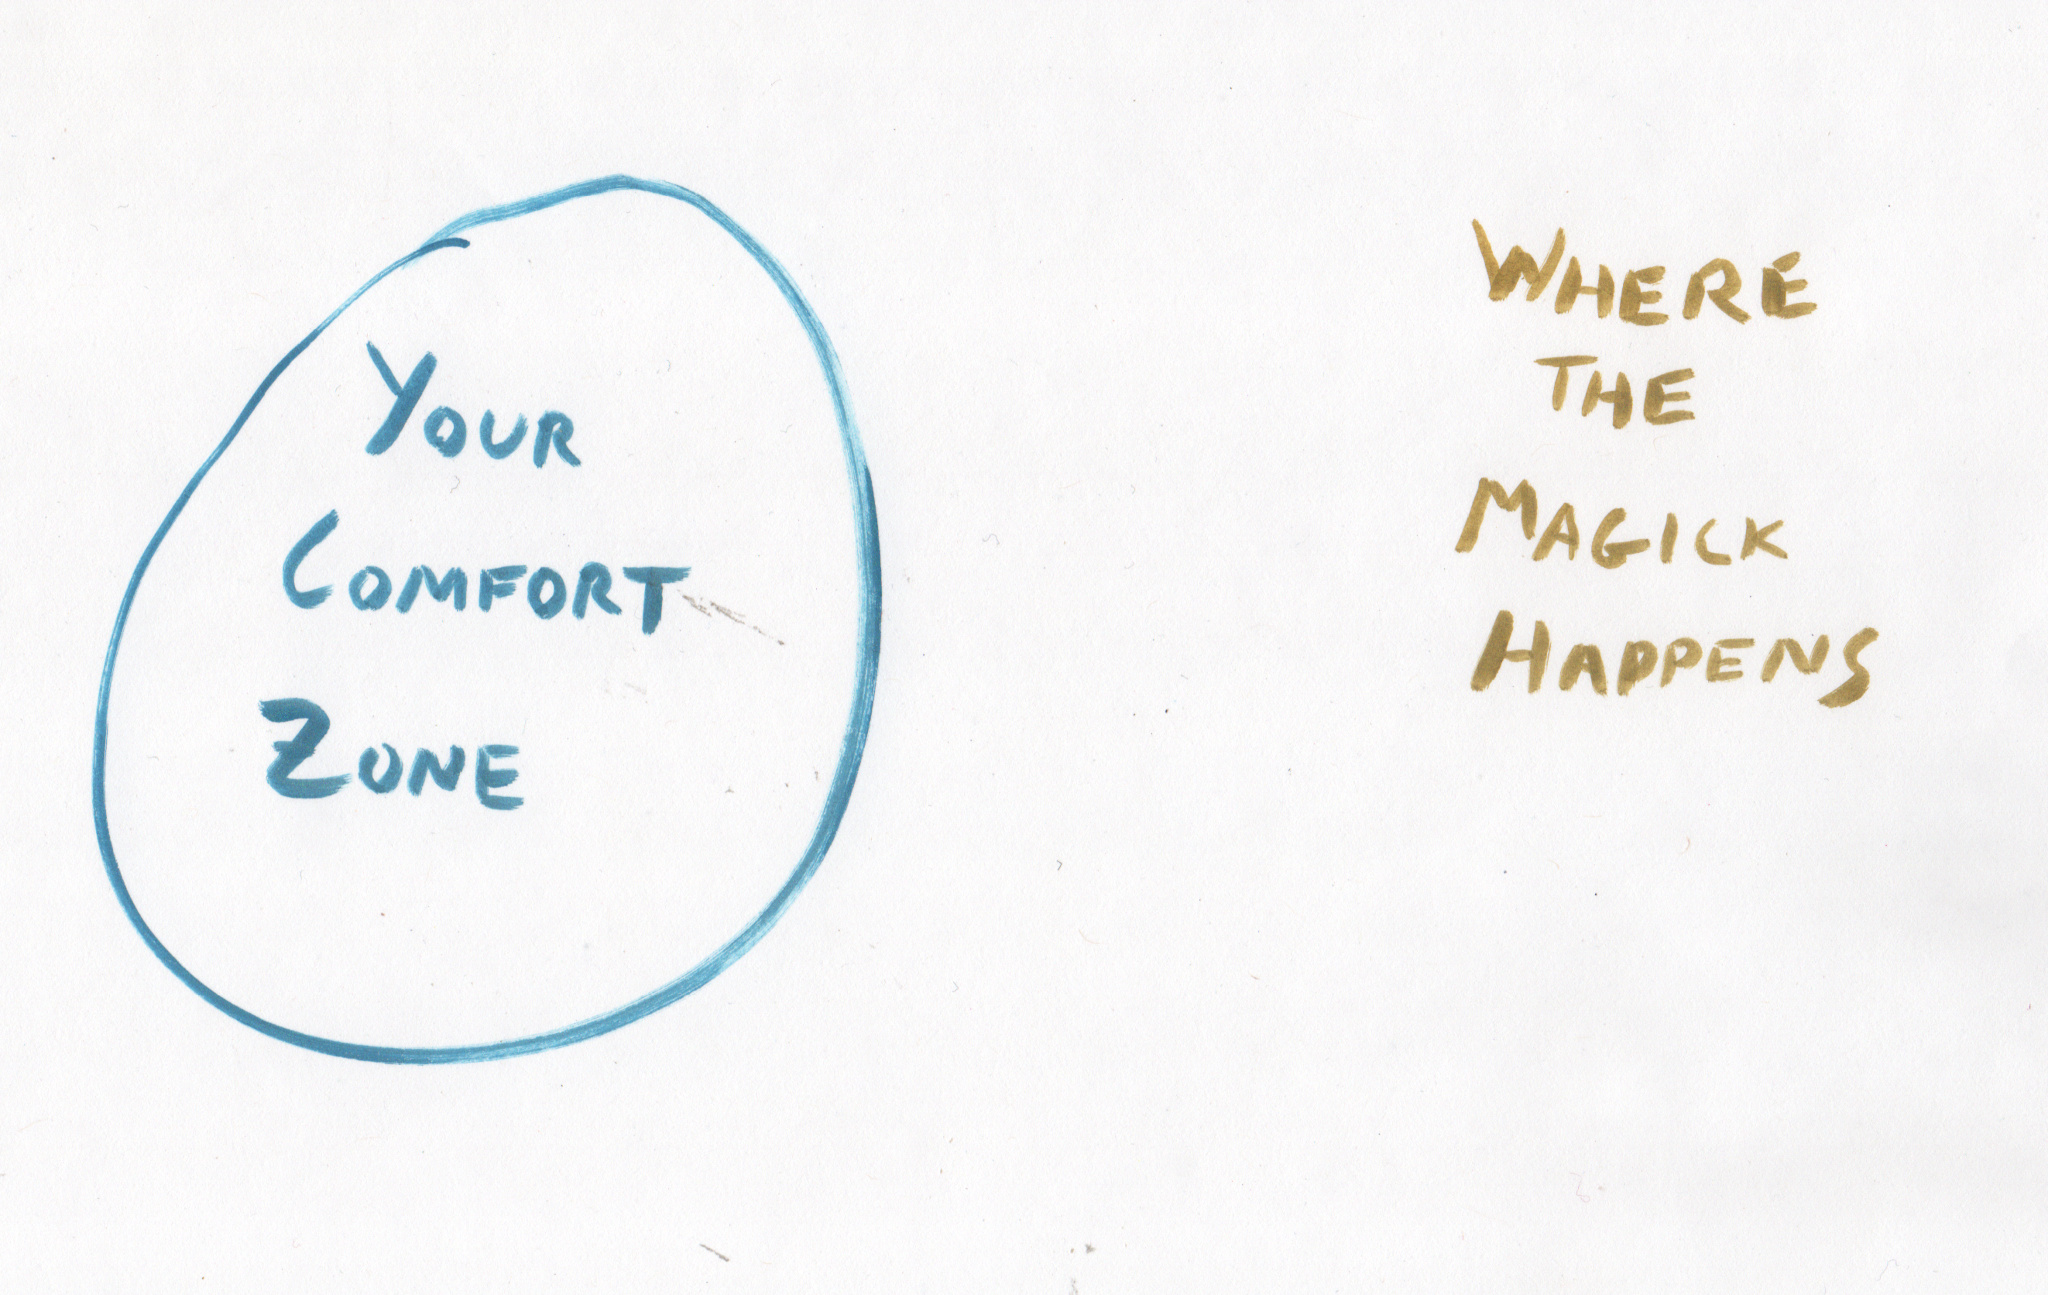 Your
Comfort
Zone
Where
The
Magick
Happens